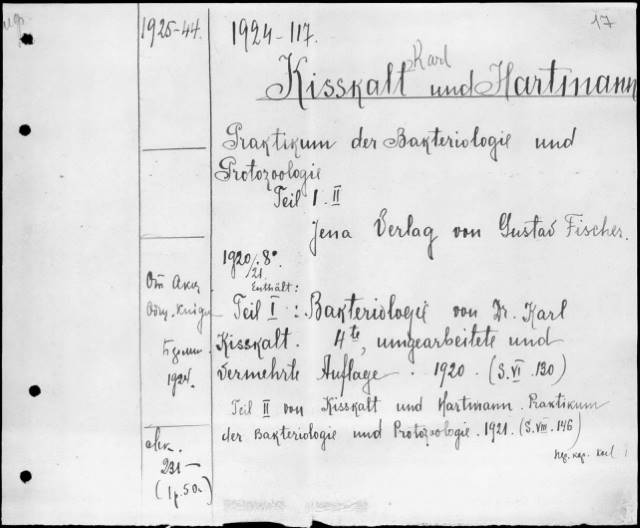 17
1925-44.
1924-117.
Karl
Kisskalt und Hartmann
Praktikum der Bakteriologie und
Protozoologie
Teil I. II
Jena Verlag von Gustav Fischer.
1920/21. 8°.
Enthält:
Teil I: Bakteriologie von Dr. Karl
Kisskalt. 4te, umgearbeitete und
vermehrte Auflage. 1920. (S. VI. 130)
Teil II von Kisskalt und Hartmann. Praktikum
der Bakteriologie und Protozoologie. 1921. (S. VIII. 146)
1924.
231-
(1 р. 50 к)